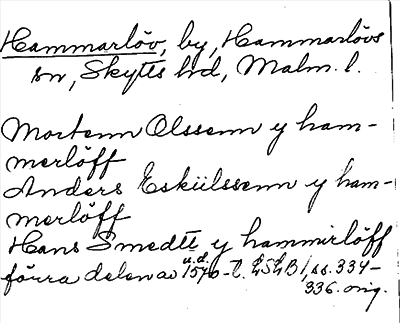 Hammarlöv, by, Hammarlövs
sn, Skytts hd, Malm. l.
Mortenn Olssenn y ham-
merlöff
Anders Eskiilssenn y ham-
merlöff
Hans Smedtt y hammirlöff
u.d.
förra delen av 1540-t. LSHB 1, ss. 334-
336. orig.